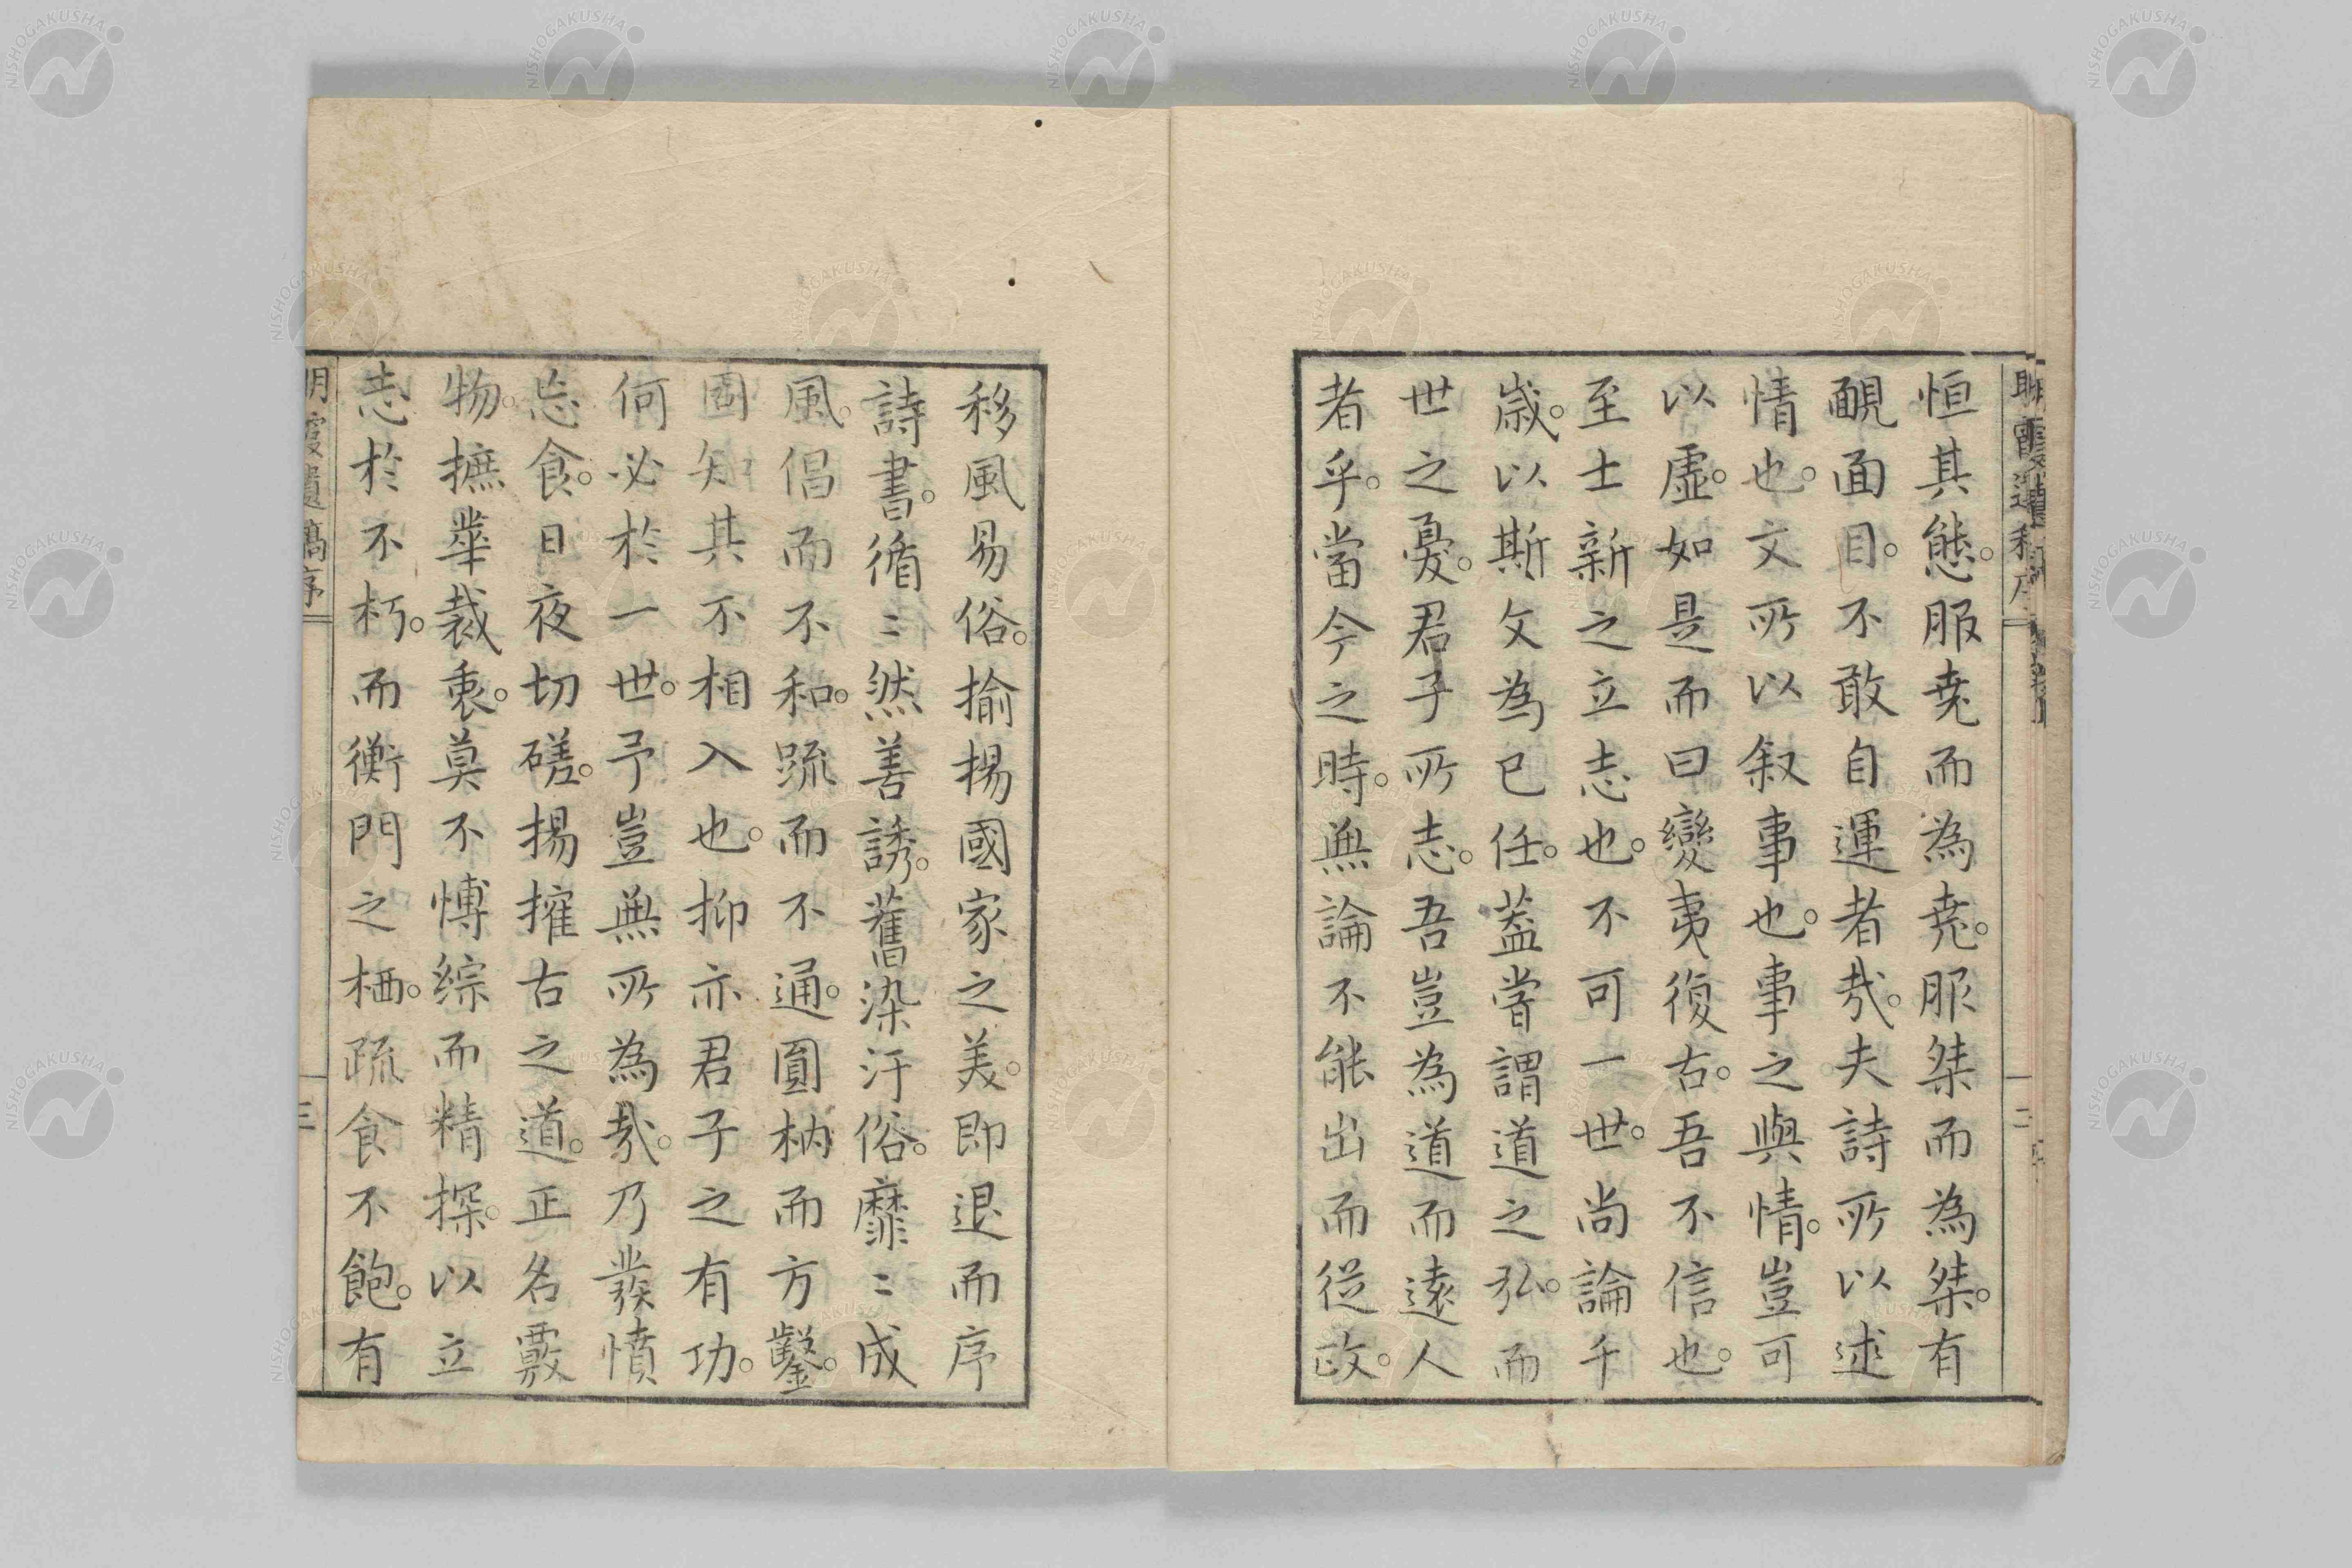 恒其態。服堯而為堯。服桀而為桀。有
靦面目。不敢自運者哉。夫詩所以述
情也。文所以叙事也。事之與情。豈可
以虛。如是而曰變夷復古。吾不信也。
至士新之立志也。不可一世。尚論千
歲。以斯文為已任。蓋嘗謂道之弘。而
世之憂。君子所志。吾豈為道而遠人
者乎。當今之時。無論不能出而從政。
移風易俗。揄揚國家之美。即退而序
詩書。循〻然善誘。舊染汙俗。靡〻成
風。倡而不和。疏而不通。圓枘而方鑿。
固知其不相入也。抑亦君子之有功。
何必於一世。予豈無所為哉。乃發憤
忘食。日夜切磋。揚搉古之道。正名覈
物。摭華裁衷。莫不博綜而精探。以立
志於不朽。而衡門之栖。疏食不飽。有
明霞遺稿序
三
NISHOGAKUSHA